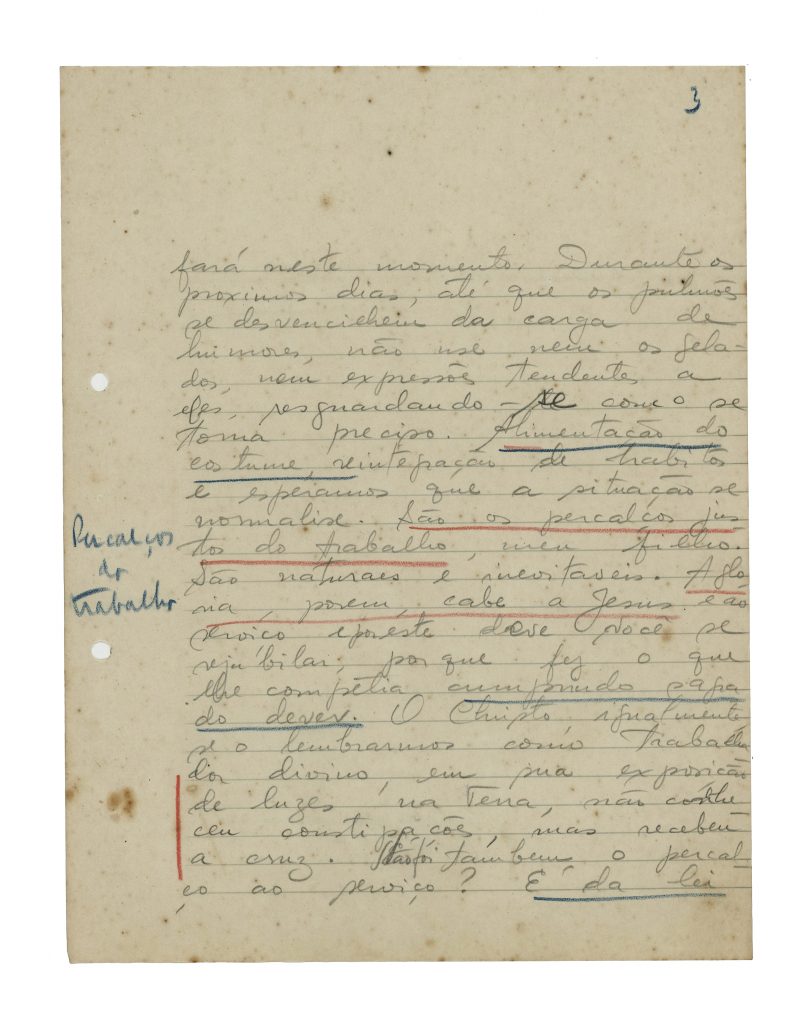 3
fará neste momento. Durante os
proximos dias, até que os pulmões
se desvencilhem da carga de
humores, não use nem os gela-
dos, nem expressões tendentes a
eles, resguardando-se como se
torna preciso. Alimentação do
costume, reintegração de habitos
e esperamos que a situação se
normalise. São os percalços jus-
tos do trabalho, meu filho.
São naturaes e inevitaveis. A glo
ria, porem, cabe a Jesus e ao
serviço e por este deve você se
rejubilar, porque fez o que
lhe competia cumprindo sagra
do dever. O Christo igualmente
se o lembrarmos como trabalha
dor divino, em sua exposição
de luzes na Terra, não conhe
ceu constipações, mas recebeu
a cruz. Não foi tambem o percal-
ço ao serviço? É da lei
Percalços
do
trabalho